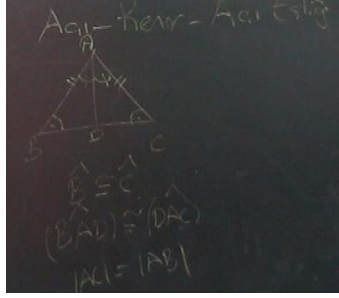 Açı-Kenar-Açı Eşliği
A
B D C
B̂ ≅ Ĉ
(BÂD) ≅ (DÂC)
|AC| = |AB|